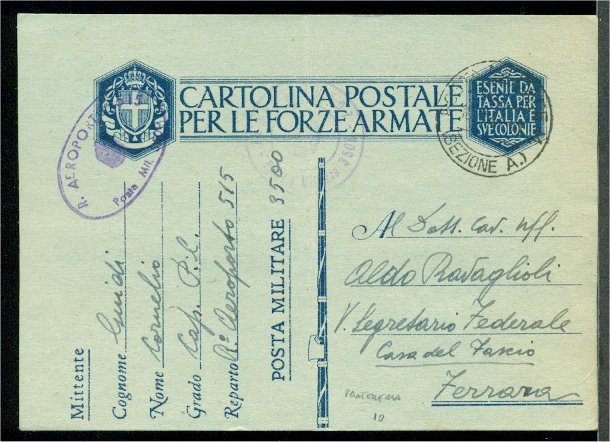 CARTOLINA POSTALE
PER LE FORZE ARMATE
ESENTE DA
TASSA PER
L'ITALIA
SVE COLONIE
(SEZIONE A.)
R. AEROPORT
Posta Mil.
3500
Mittente
Cognome Guidi
Nome Cornelio
Grado Cap. P.L.
Reparto R° Aeroporto 515
POSTA MILITARE 3500
Al Dott. Cav. Uff.
Aldo Ravaglioli
V. Segretario Federale
Casa del Fascio
Ferrara
10